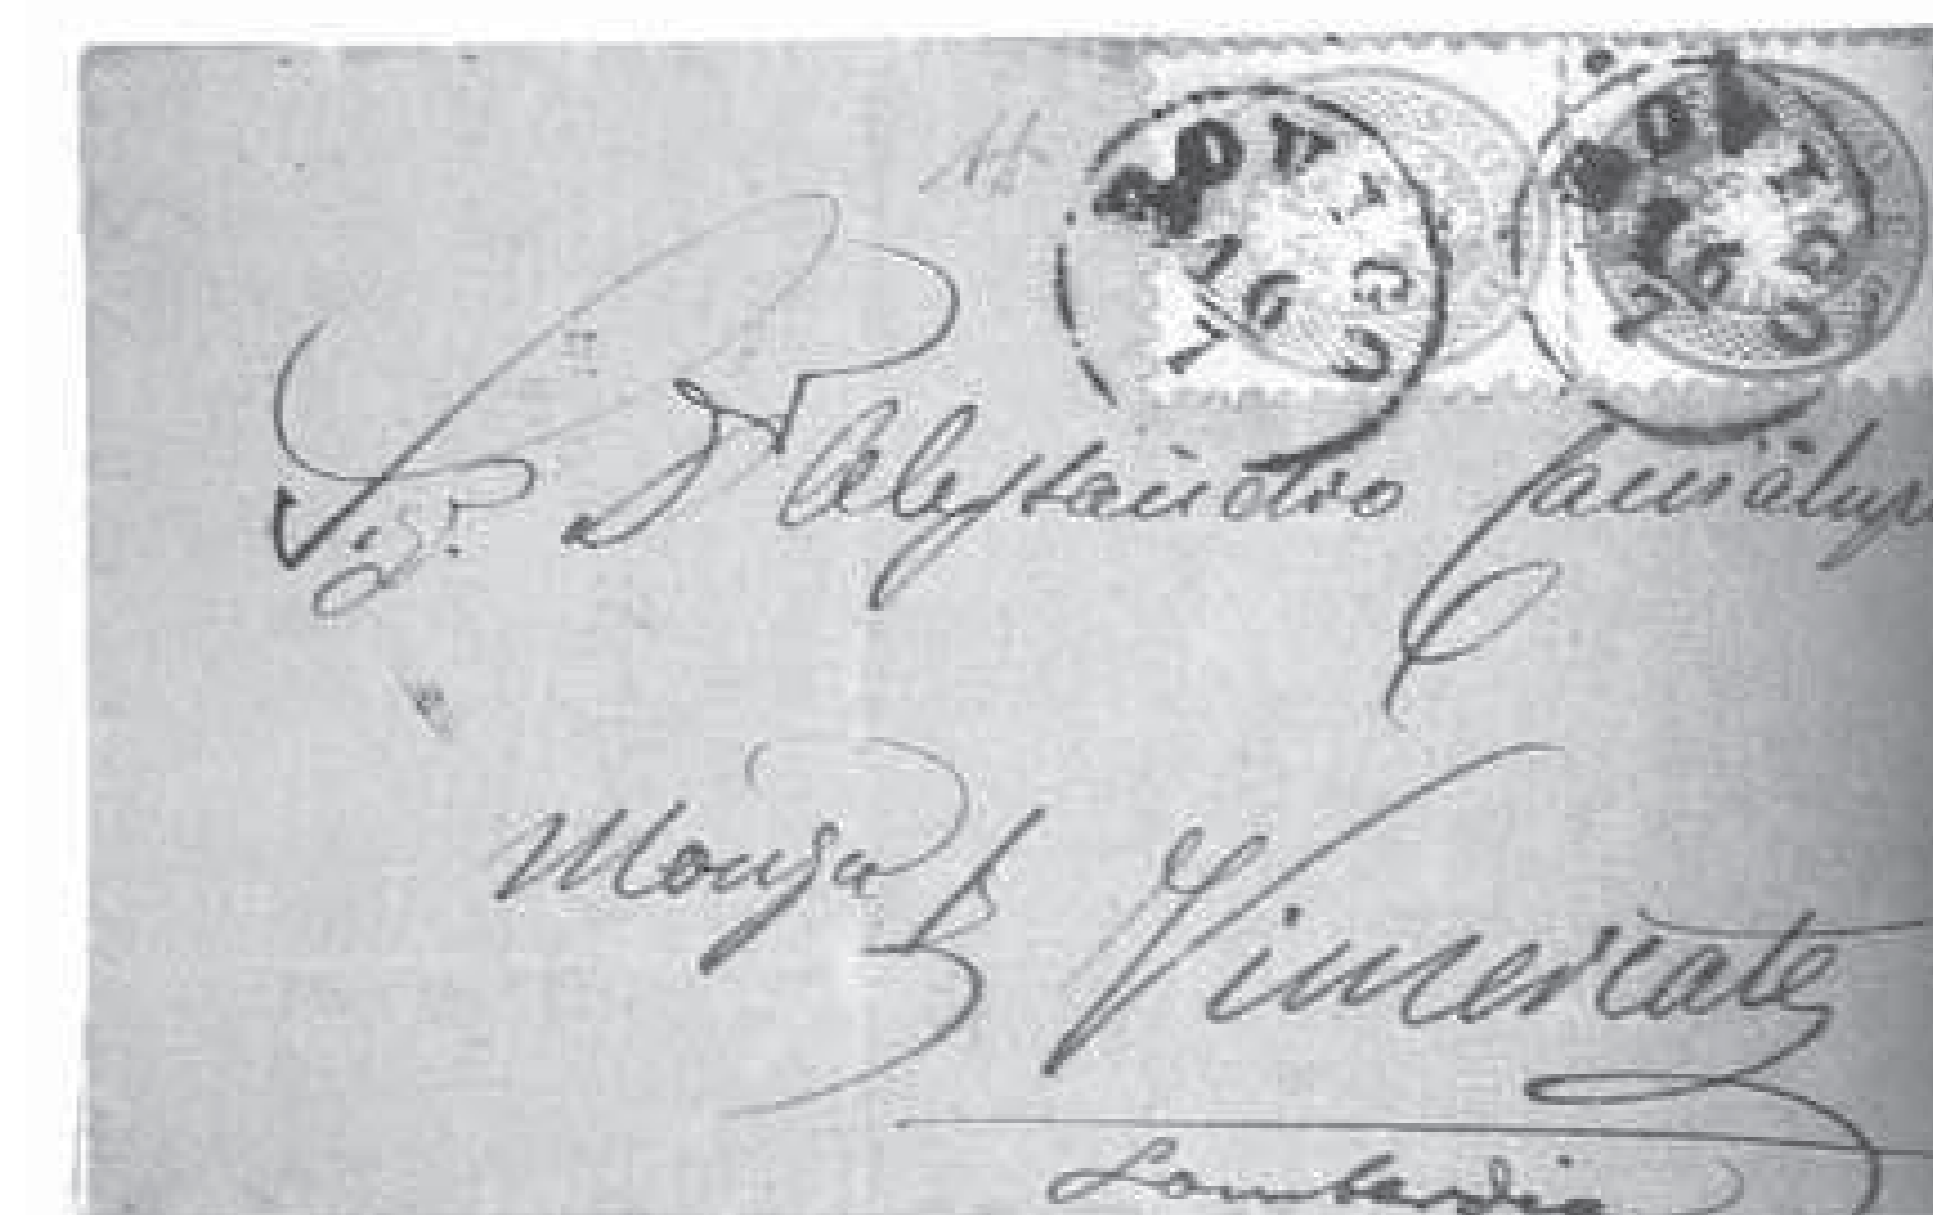 ROVIGO
16
7
ROVIGO
16
7
Sigr. Dr Alessandro
Monza p Vimercate
Lombardia